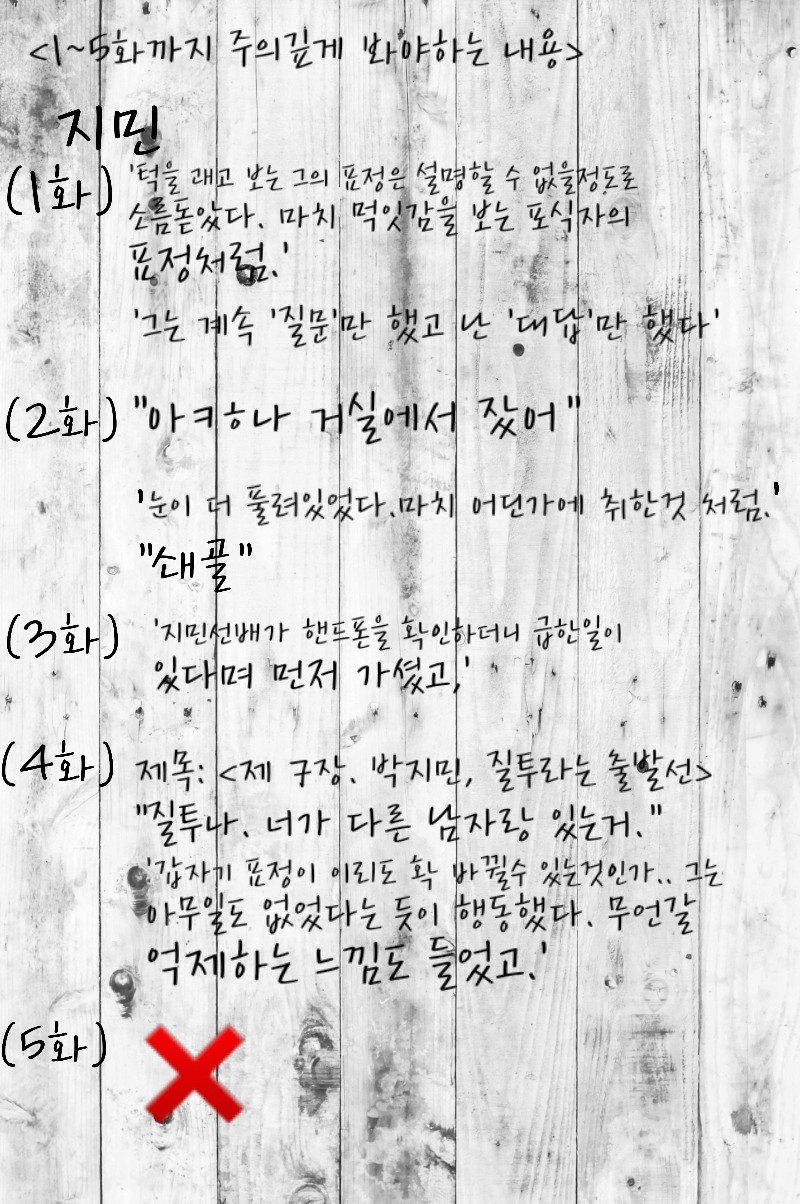 <1~5화까지 주의깊게 봐야하는 내용>
지민
(1화) '턱을 괘고 보는 그의 표정은 설명할 수 없을정도로
소름돋았다. 마치 먹잇감을 보는 포식자의
표정처럼.'
'그는 계속 '질문'만 했고 난 '대답'만 했다'
(2화) "아ㅋㅎ나 거실에서 잤어"
'눈이 더 풀려있었다.마치 어딘가에 취한것 처럼.'
"쇄골"
(3화) '지민선배가 핸드폰을 확인하더니 급한일이
있다며 먼저 가셨고,'
(4화) 제목: <제 9장. 박지민, 질투라는 출발선>
"질투나. 너가 다른 남자랑 있는거."
'갑자기 표정이 이리도 확 바뀔수 있는것인가.. 그는
아무일도 없었다는 듯이 행동했다. 무언갈
억제하는 느낌도 들었고.'
(5화)